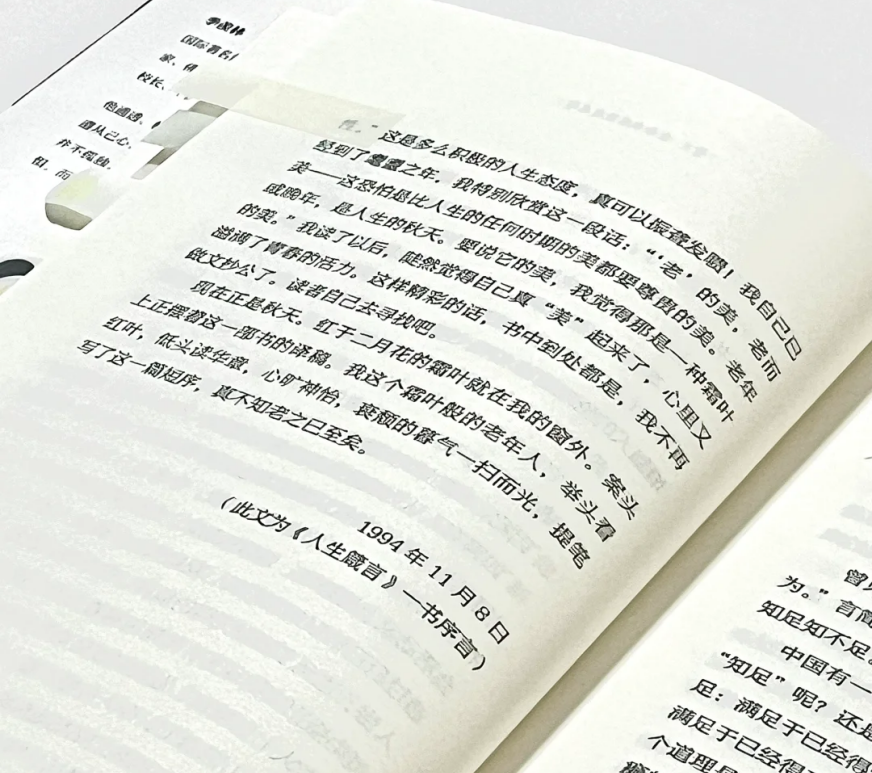 季羡林
国际著名
校长、
他通透、
遵从己心,
并不孤独,
但,而
性。”
这是多么积极的人生态度,真可以振聋发聩!我自己已
经到了耄耋之年,我特别欣赏这一段话:“‘老’的美,老而
美——这恐怕是比人生的任何时期的美都要尊贵的美。老年
或晚年,是人生的秋天。要说它的美,我觉得那是一种霜叶
的美。”我读了以后,陡然觉得自己真“美”起来了,心里又
溢满了青春的活力。这样精彩的话,书中到处都是,我不再
做文抄公了。读者自己去寻找吧。
现在正是秋天。红于二月花的霜叶就在我的窗外。案头
上正摆着这一部书的译稿。我这个霜叶般的老年人,举头看
红叶,低头读华章,心旷神怡,衰颓的暮气一扫而光,提笔
写了这一篇短序,真不知老之已至矣。
1994 年 11 月 8 日
(此文为《人生箴言》一书序言)
曾
为。”言简
知足知不足。
中国有一
“知足”呢?还是
足:满足于已经得
满足于已经得
个道理是